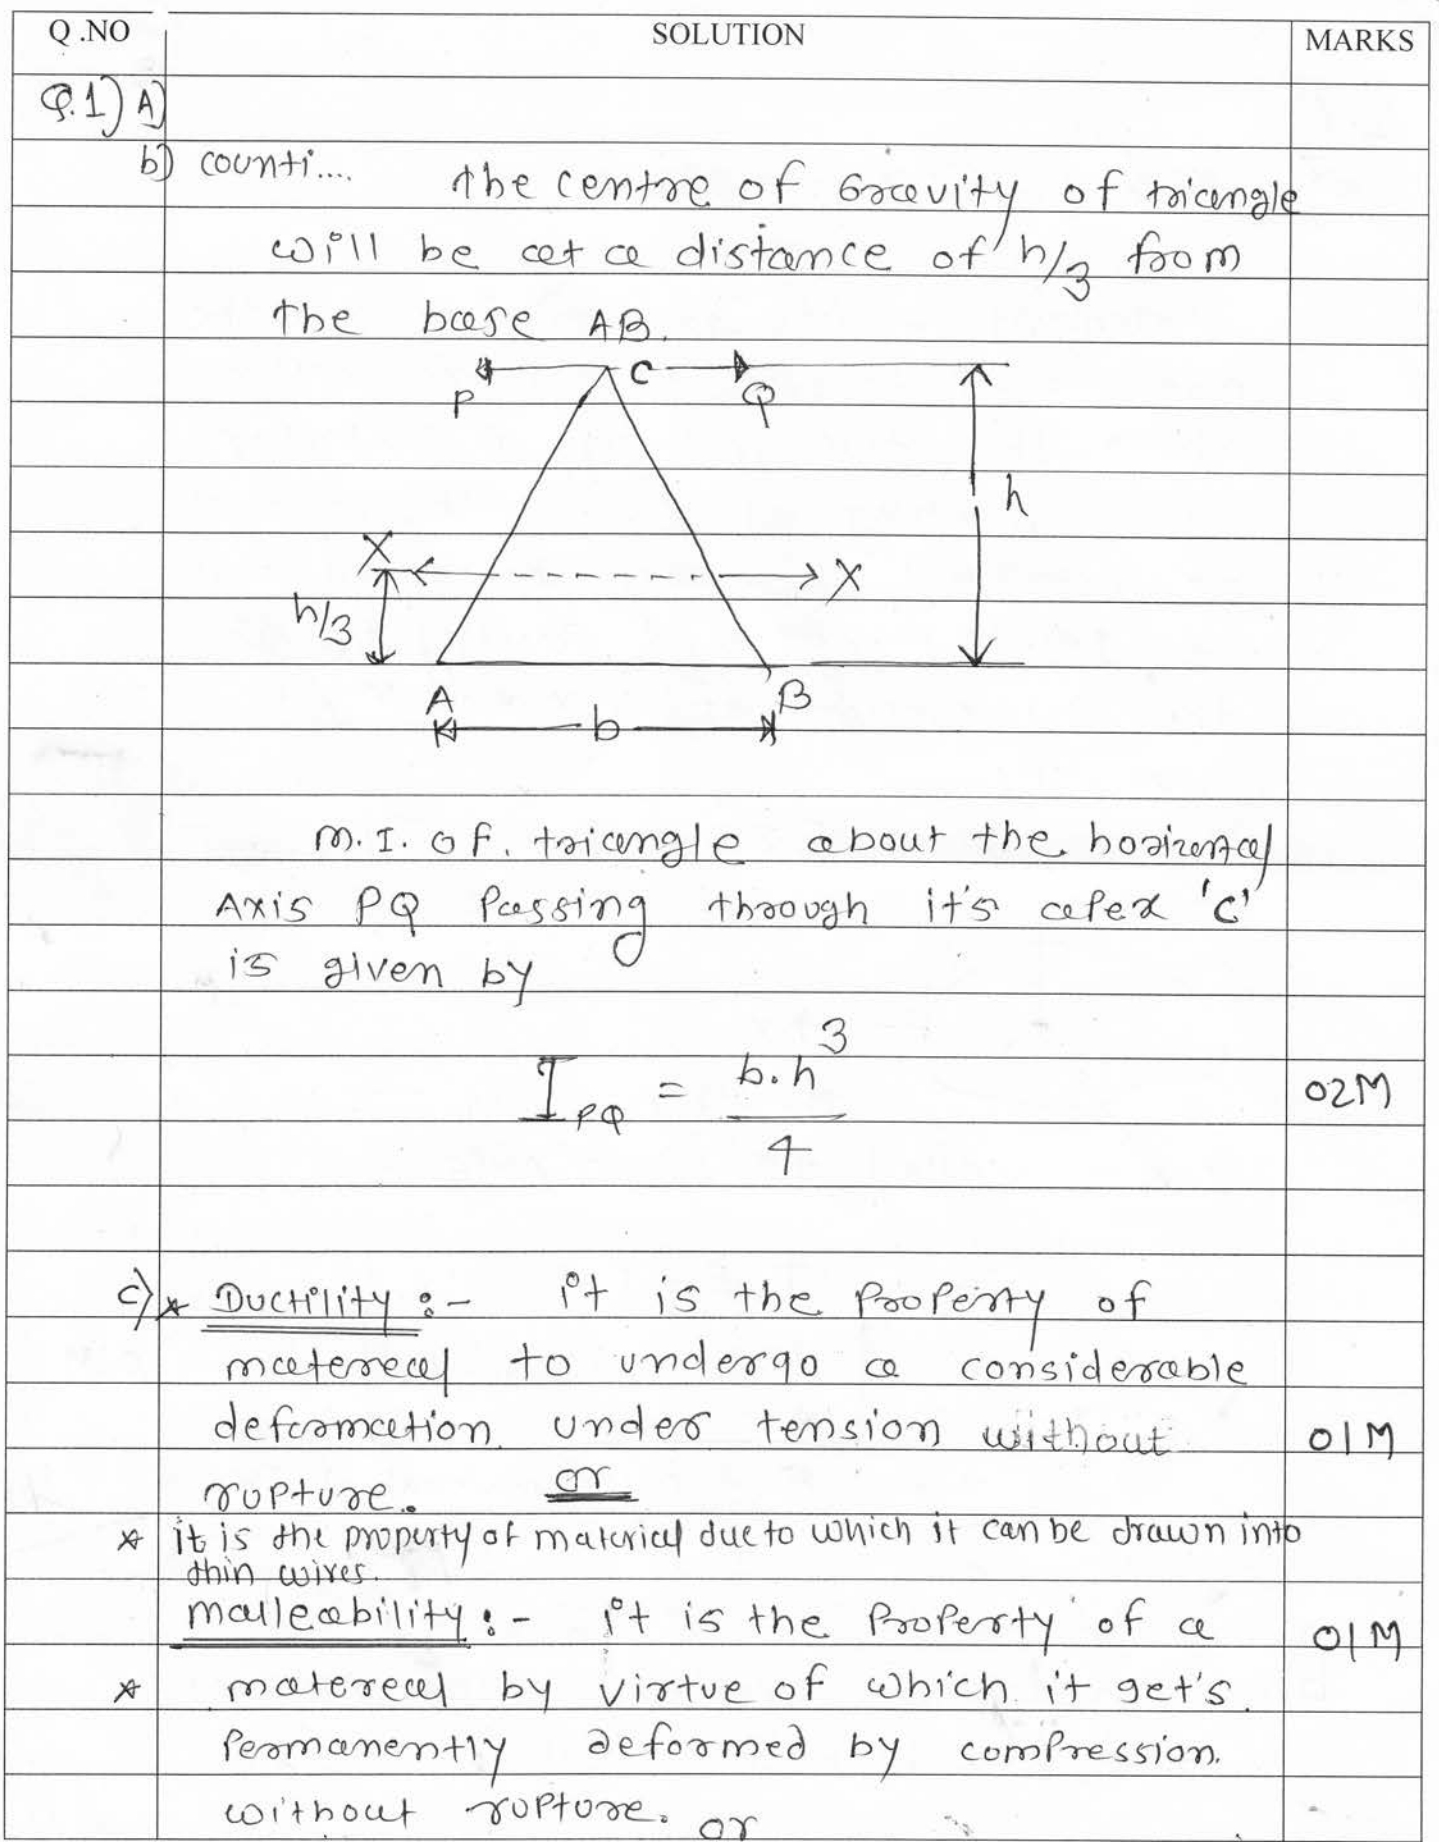 Q.NO SOLUTION MARKS
Q.1) A)
b) counti.... the centre of Gravity of triangle
will be at a distance of h/3 from
the base AB.
P C Q
h
X X
h/3
A B
b
M.I. of. triangle about the horizontal
Axis PQ Passing through it's apex 'C'
is given by
I PQ = b.h³ / 4 02M
c) * Ductility :- it is the Property of
matereal to undergo a considerable
deformation under tension without 01M
rupture. or
* it is the property of material due to which it can be drawn into
thin wires.
malleability :- it is the Property of a 01M
* matereal by virtue of which it get's
Permanently deformed by compression.
without rupture. or